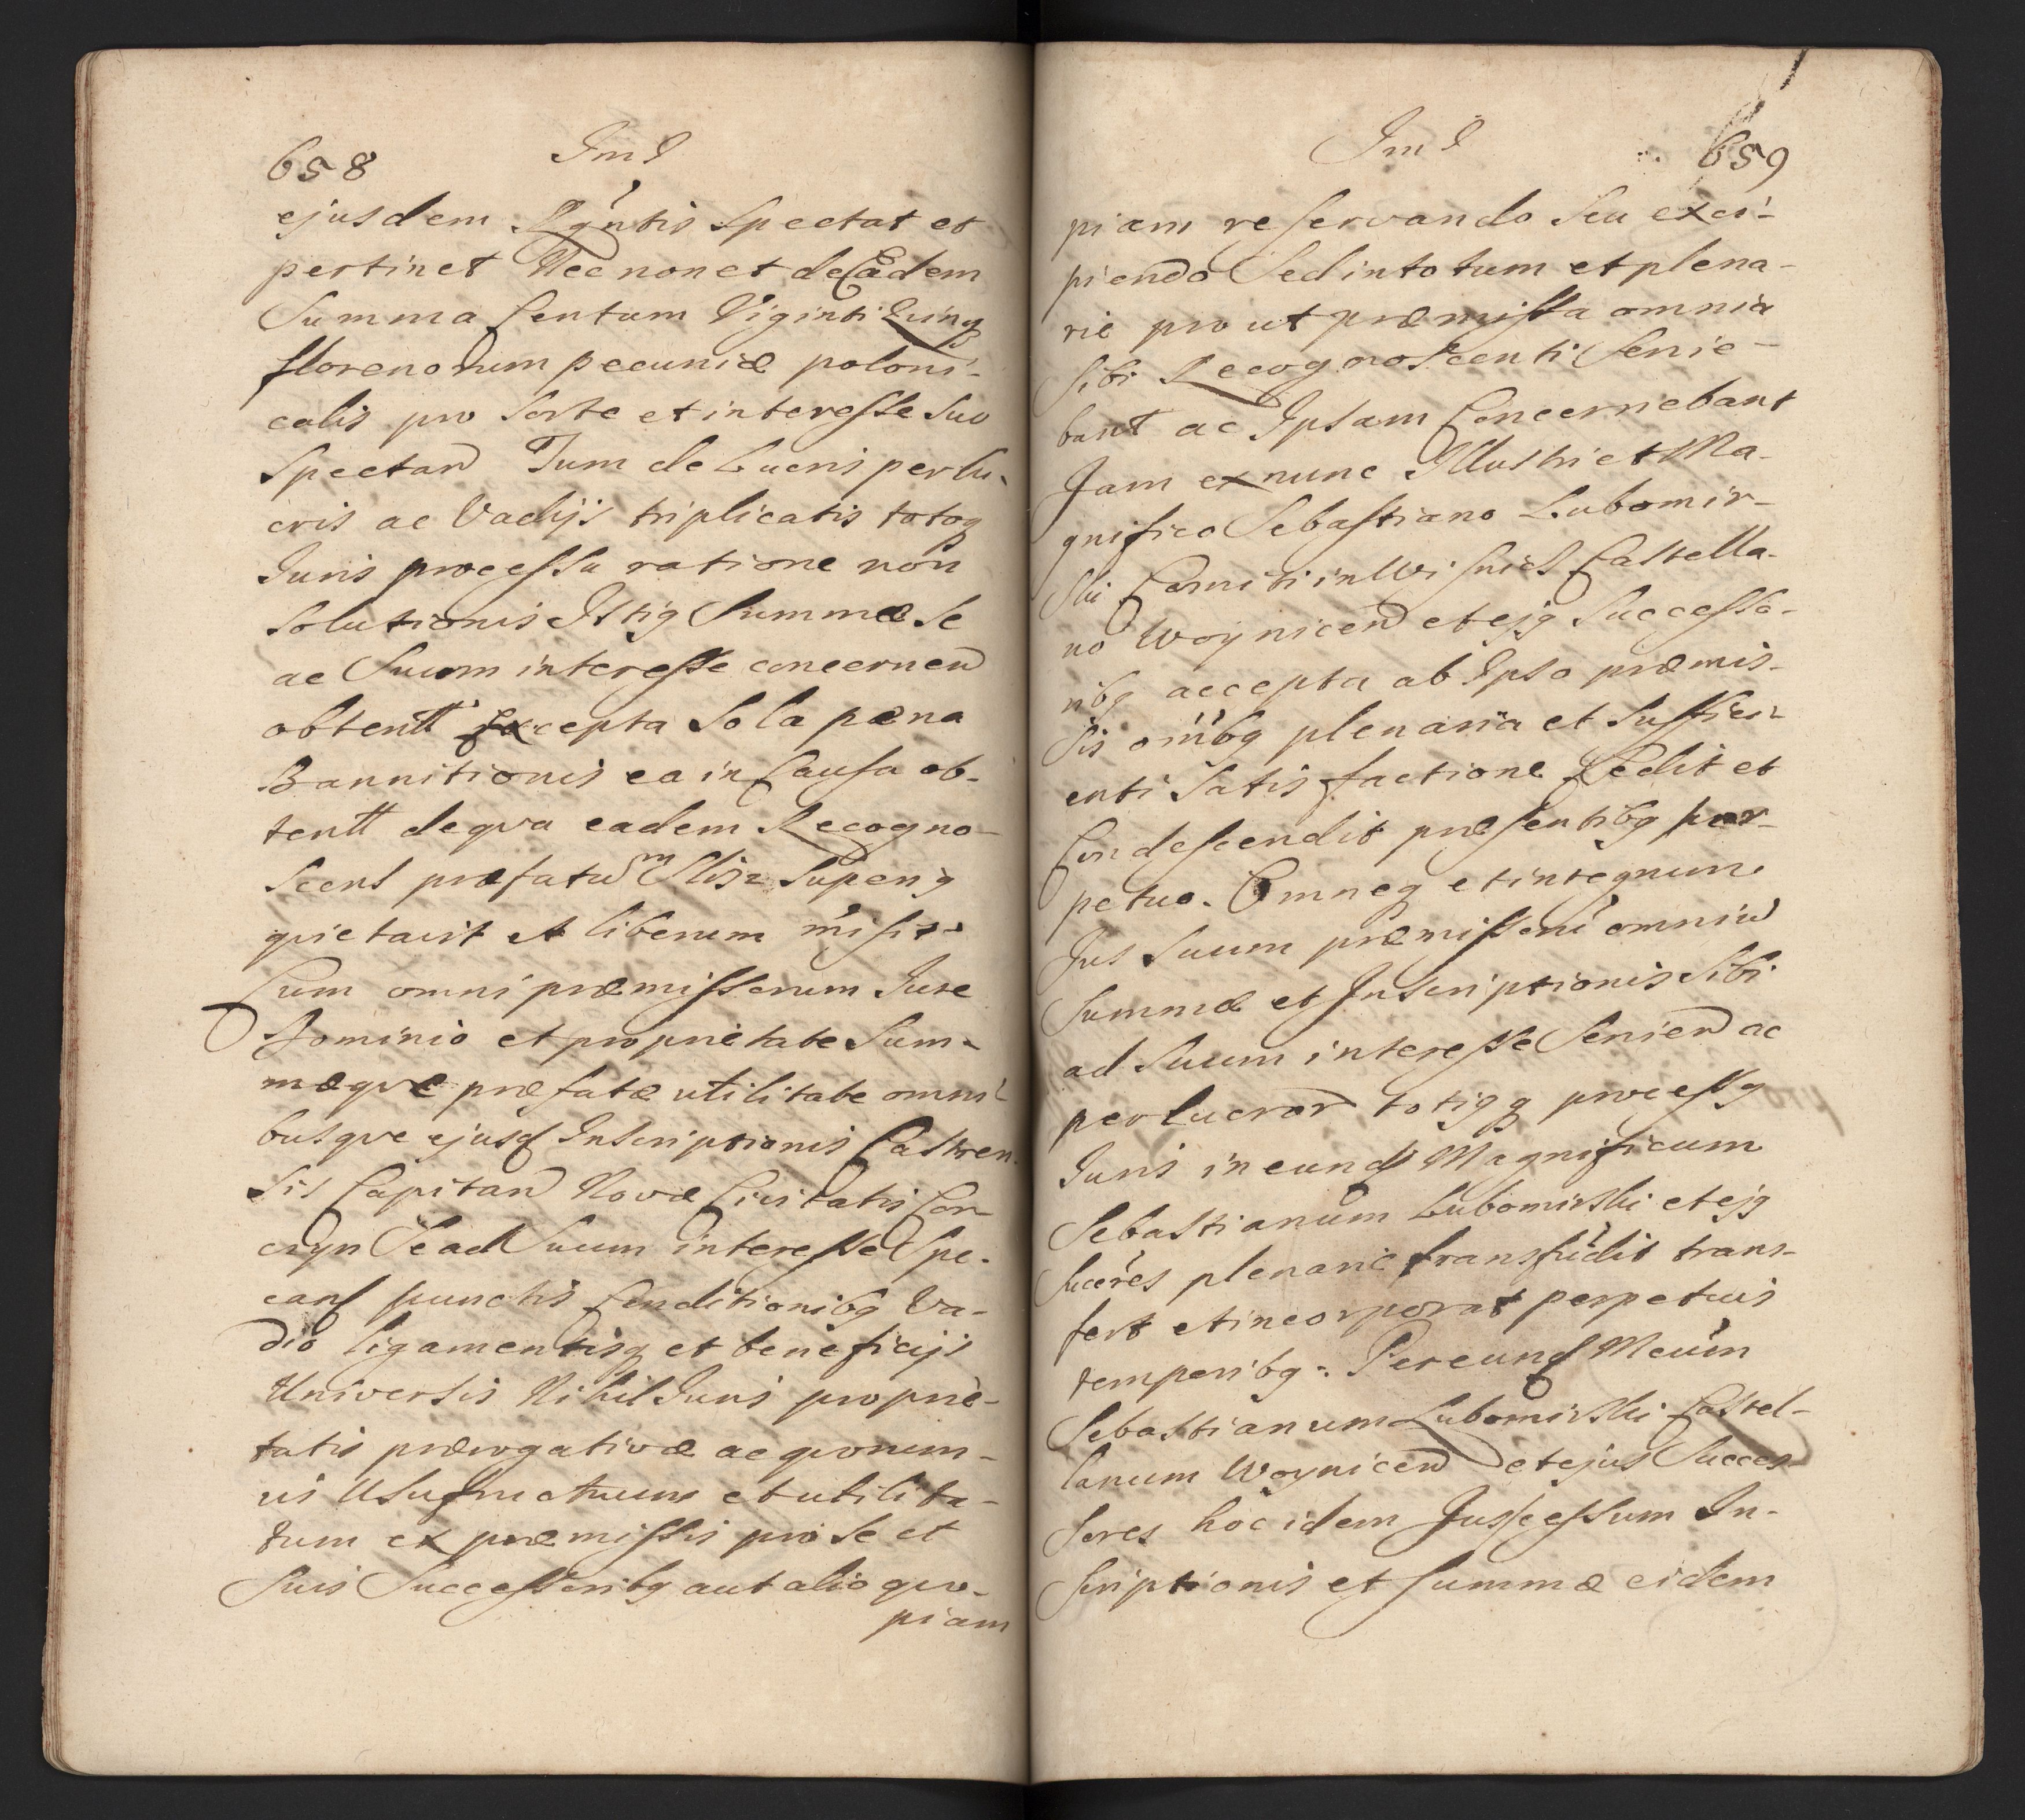 658 Im I
ejusdem Rgntis Spectat et
pertinet Nec non et de Eadem
Summa Centum Viginti Quinq
florenorum pecuniæ poloni-
calis pro Sorte et interesse Suo
Spectan Tum de Lucris perlu-
cris ac Vadijs triplicatis totoq
Iuris processu ratione non
Solutionis Istig Summæ Se
ac Suum interesse concernen
obtentt Excepta Sola pæna
Bannitionis ea in Causa ob-
tentt de qva eadem Recogno-
scens præfatum Slisz Superig
qvietavit et liberum misit
Cum omni præmissorum Iure
Dominio et proprietate Sum-
mæqve præfatæ utilitate omni-
busqve ejusd Inscriptionis Castren
sis Capitan Novæ Civitatis Cor-
czyn Se ad Suum interesse Spe-
can punctis Conditionibg Va-
dio ligamentisq et beneficijs
Universis Nihil Iuris proprie-
tatis prærogativæ ac qvorum-
vis Usufructuum et utilita-
tum ex præmissis pro Se et
Suis Successoribg aut alio qvo-
piam
Im I 659
piam reservando Seu exci-
piendo Sed in totum et plena-
rie pro ut præmissa omnia
Sibi Recognoscenti Servie-
bant ac Ipsam Concernebant
Jam ex nunc Illustri et Ma-
gnifico Sebastiano Lubomir-
ski Comiti in Wisnics Castella-
no Woynicen et ejg Successo-
ribg accepta ab Ipso præmis-
sis omibg plenaria et Suffici-
enti Satisfactione Cedit et
Condescendit præsentibg per-
petuo. Omneq et integrum
Jus Suum præmissoru omniu
Summæ et Inscriptionis Sibi
ad Suum interesse Servien ac
perlucror totigq processg
Iuris in eund Magnificum
Sebastianum Lubomirski et ejg
Succres plenarie transfudit trans-
fert et incorporat perpetuis
temporibg: Per eund Mcum
Sebastianum Lubomirski Castel-
lanum Woynicen et ejus Succes-
sores hoc idem Jus cessum In-
scriptionis et Summæ eidem